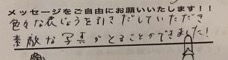 メッセージをご自由にお願いいたします!!
色々な表じょうを引きだしていただき
素敵な写真がとることができました!